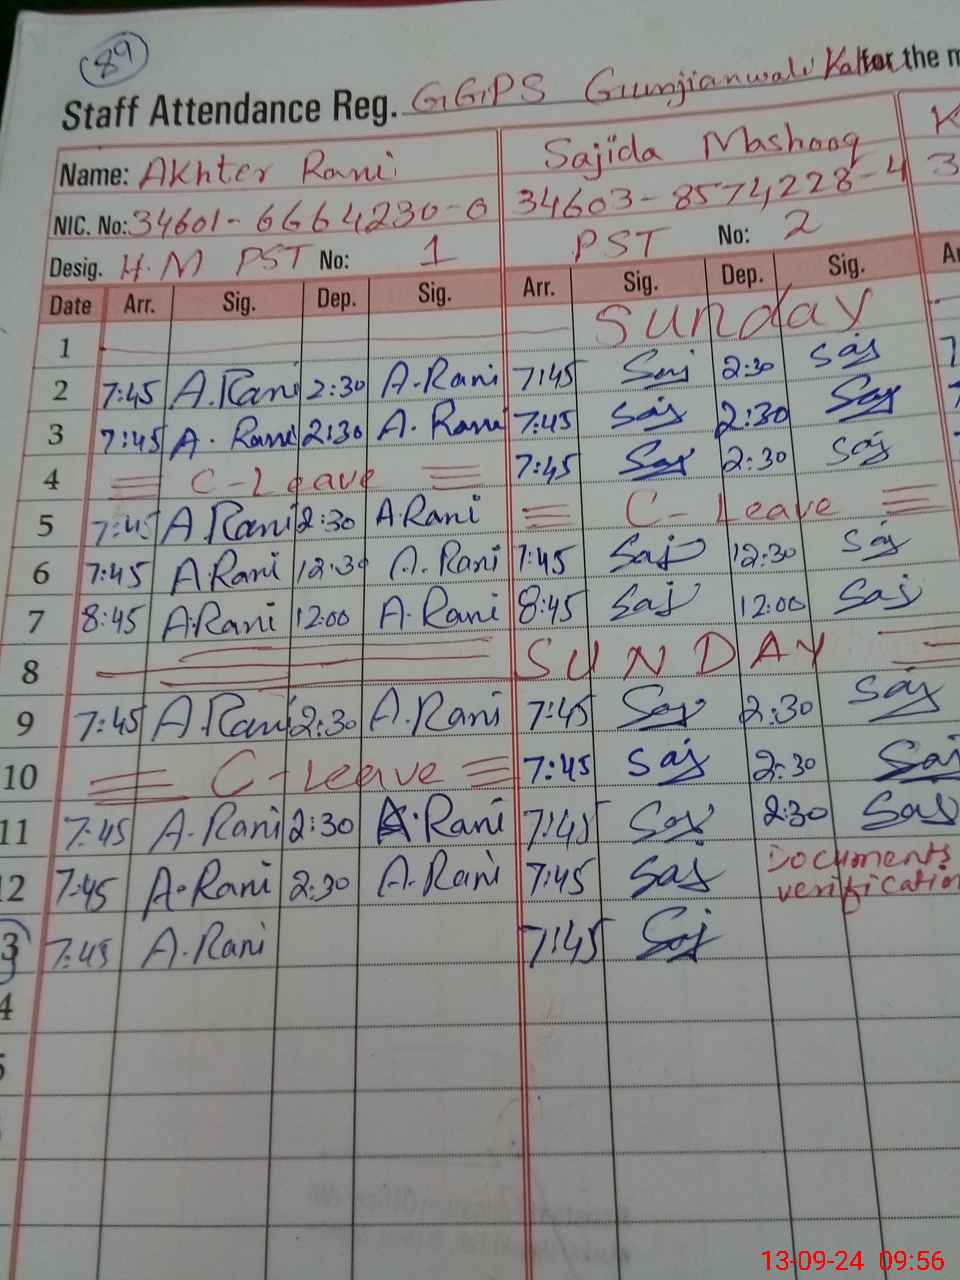 89
Staff Attendance Reg. GGPS Gumjianwali Kalan for the m
Name: Akhter Rani Sajida Mashooq K
NIC. No: 34601-6664230-0 34603-8574228-4 3
Desig. H.M PST No: 1 PST No: 2
Date Arr. Sig. Dep. Sig. Arr. Sig. Dep. Sig. Ar
1 Sunday
2 7:45 A.Rani 2:30 A.Rani 7:45 Saj 2:30 Saj 7
3 7:45 A. Rani 2:30 A. Rani 7:45 Saj 2:30 Saj
4 C-Leave 7:45 Saj 2:30 Saj
5 7:45 A Rani 2:30 A.Rani C-Leave
6 7:45 A.Rani 12:30 A. Rani 7:45 Saj 12:30 Saj
7 8:45 A.Rani 12:00 A. Rani 8:45 Saj 12:00 Saj
8 SUNDAY
9 7:45 A Rani 2:30 A.Rani 7:45 Saj 2:30 Saj
10 C-Leave 7:45 Saj 2:30 Saj
11 7:45 A.Rani 2:30 A.Rani 7:45 Saj 2:30 Saj
12 7:45 A.Rani 2:30 A.Rani 7:45 Saj Documents verification
3 7:45 A.Rani 7:45 Saj
4
5
13-09-24 09:56